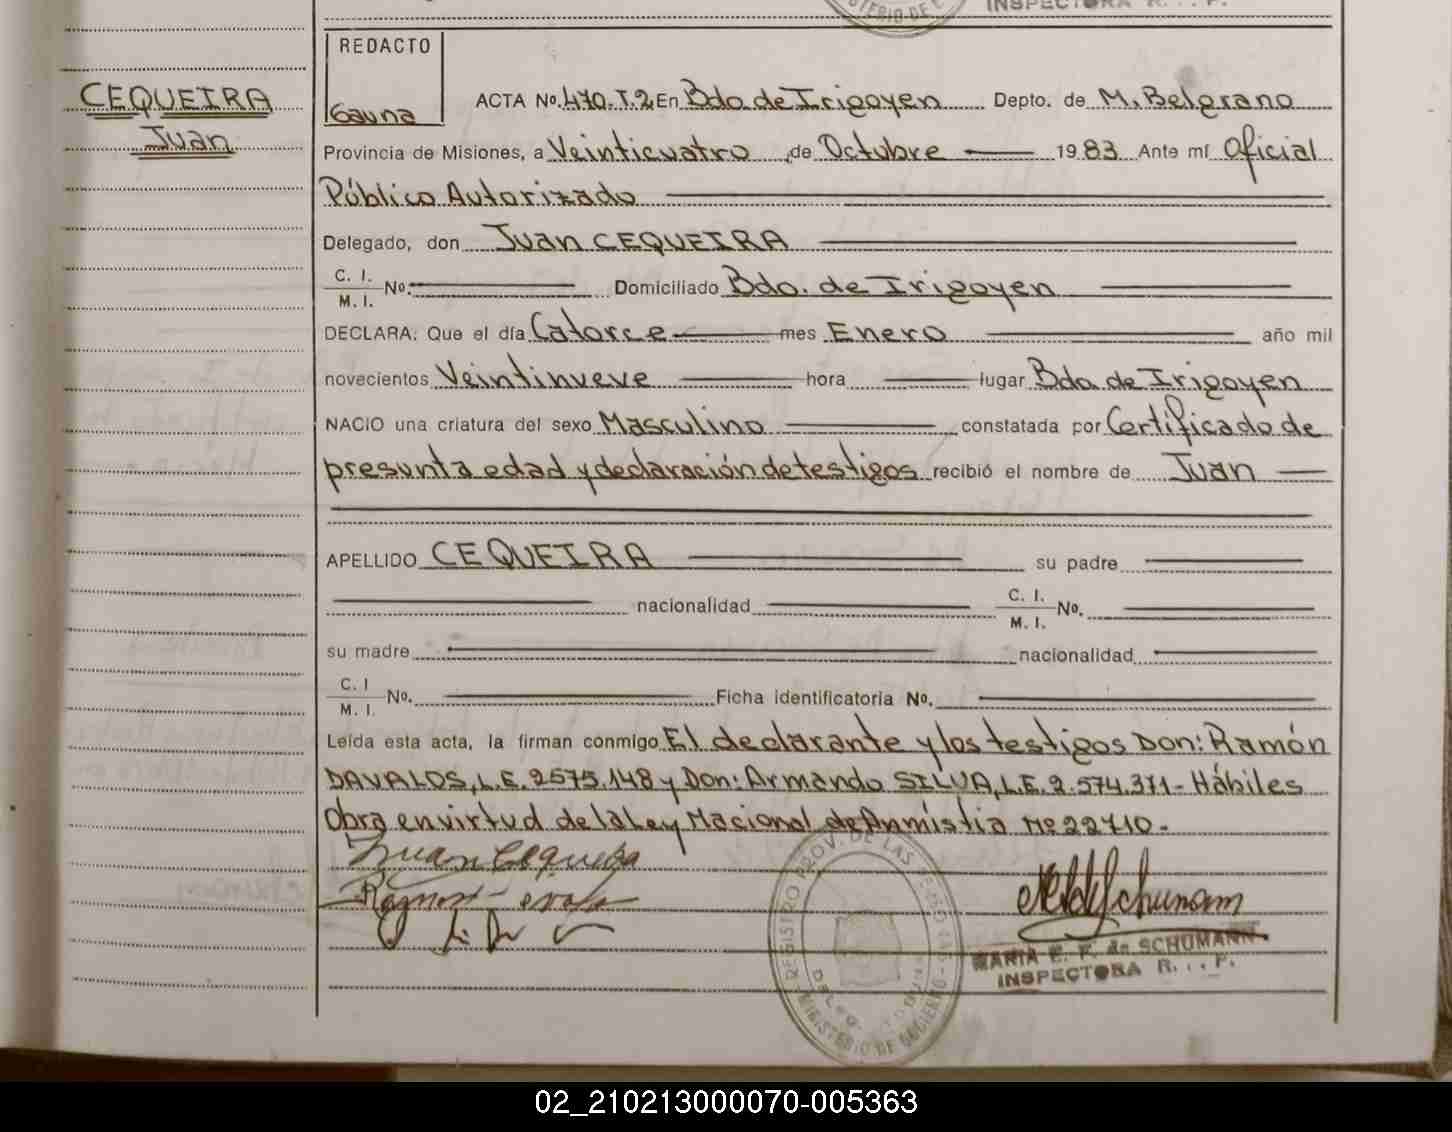 INSPECTORA R. . . P.
REDACTO
Gauna
CEQUEIRA
Juan
ACTA No. 470.T.2 En Bdo. de Irigoyen Depto. de M. Belgrano
Provincia de Misiones, a Veinticuatro de Octubre 1983 Ante mí Oficial
Público Autorizado
Delegado, don Juan CEQUEIRA
C. I.
M. I. No. Domiciliado Bdo. de Irigoyen
DECLARA: Que el día Catorce mes Enero año mil
novecientos Veintinueve hora lugar Bdo. de Irigoyen
NACIO una criatura del sexo Masculino constatada por Certificado de
presunta edad y declaración de testigos recibió el nombre de Juan
APELLIDO CEQUEIRA su padre
nacionalidad C. I.
M. I. No.
su madre nacionalidad
C. I
M. I. No. Ficha identificatoria No.
Leída esta acta, la firman conmigo El declarante y los testigos Don: Ramón
DAVALOS, L.E. 2575.148 y Don: Armando SILVA, L.E. 2.574.371- Hábiles
Obra en virtud de la Ley Nacional de Anmistia Nº 22710-
Juan Cequeira
REGISTRO PROV. DE LAS PERSONAS
MINISTERIO DE GOBIERNO
MARIA E. F. de SCHUMANN
INSPECTORA R. . . P.
02_210213000070-005363